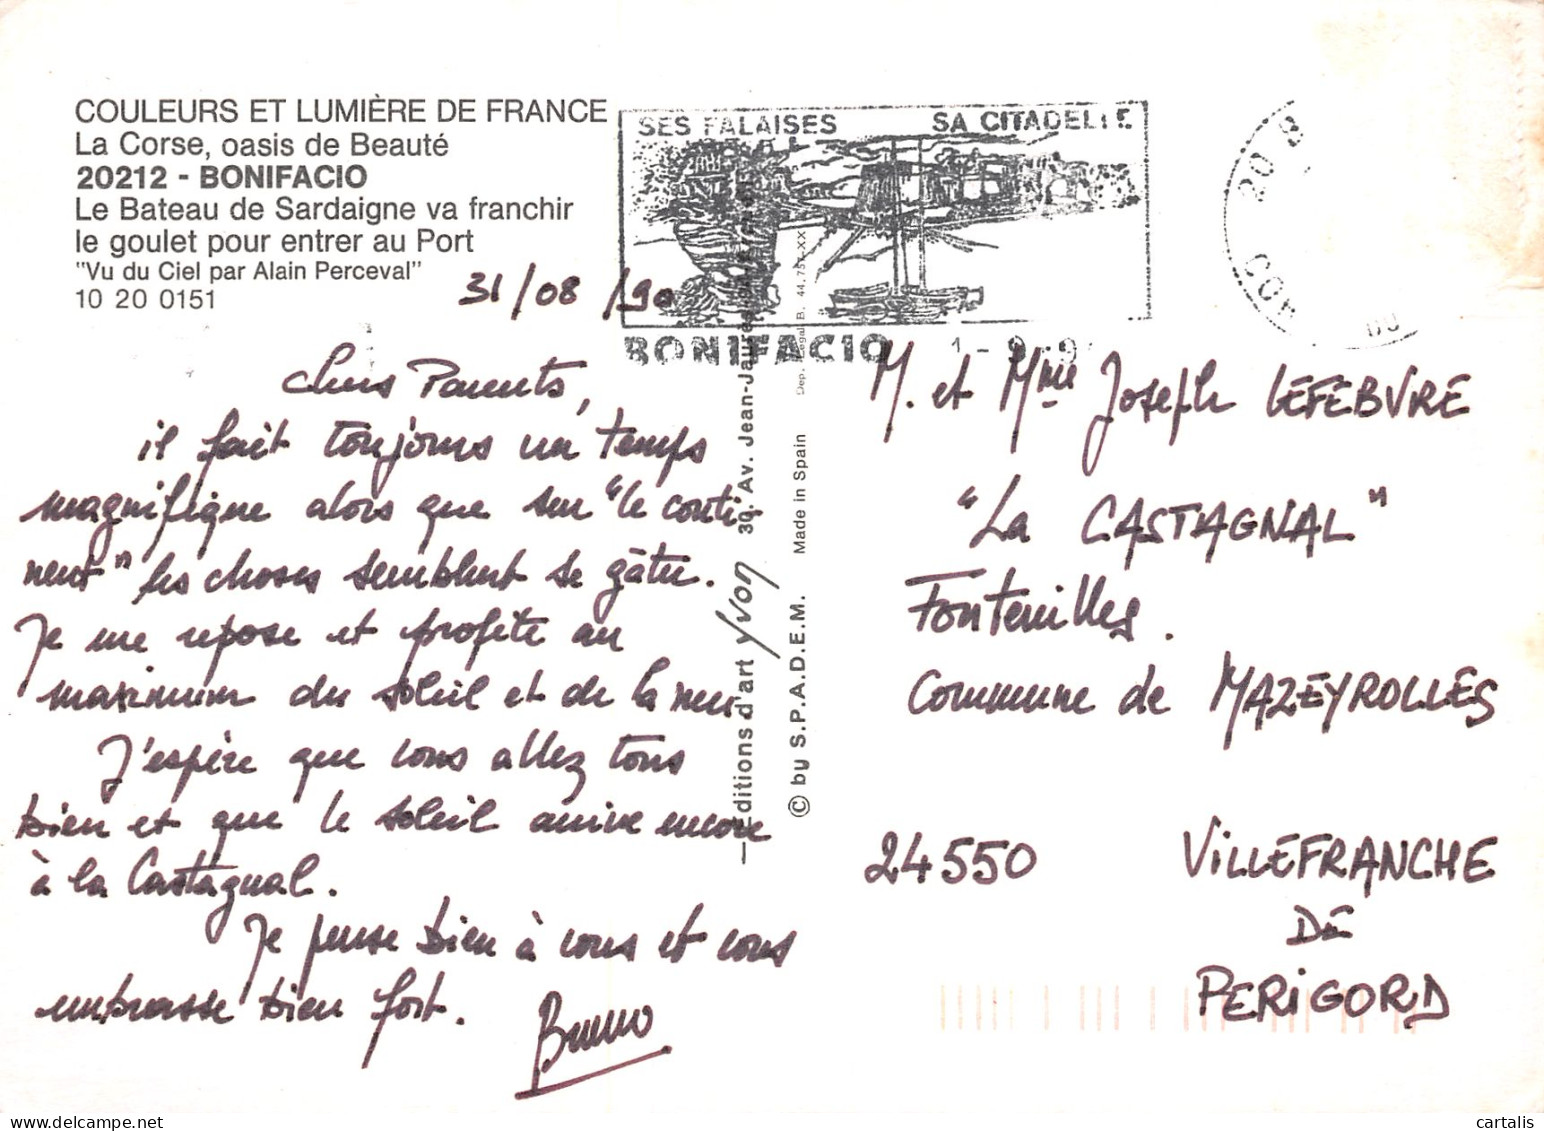 COULEURS ET LUMIÈRE DE FRANCE
La Corse, oasis de Beauté
20212 - BONIFACIO
Le Bateau de Sardaigne va franchir
le goulet pour entrer au Port
"Vu du Ciel par Alain Perceval"
10 20 0151
31/08/90
Chers Parents,
il fait toujours un temps
magnifique alors que sur "le conti-
nent" les choses semblent se gâter.
Je me repose et profite au
maximum du soleil et de la mer
J'espère que vous allez tous
bien et que le soleil arrive encore
à la Castagnal.
Je pense bien à vous et vous
embrasse bien fort.
Bruno
SES FALAISES SA CITADELLE
BONIFACIO
1 - 9 - 9
20 B
COR
DU
Editions d'art yvon 30, Av. Jean-Jaurès
© by S.P.A.D.E.M. Made in Spain Dep. Legal B. 44.757-XX
M. et Mme Joseph LEFEBVRE
"La CASTAGNAL"
Fonteuilles.
Commune de MAZEYROLLES
24550 ViLLEFRANCHE
DE
PERiGORD
cartalis